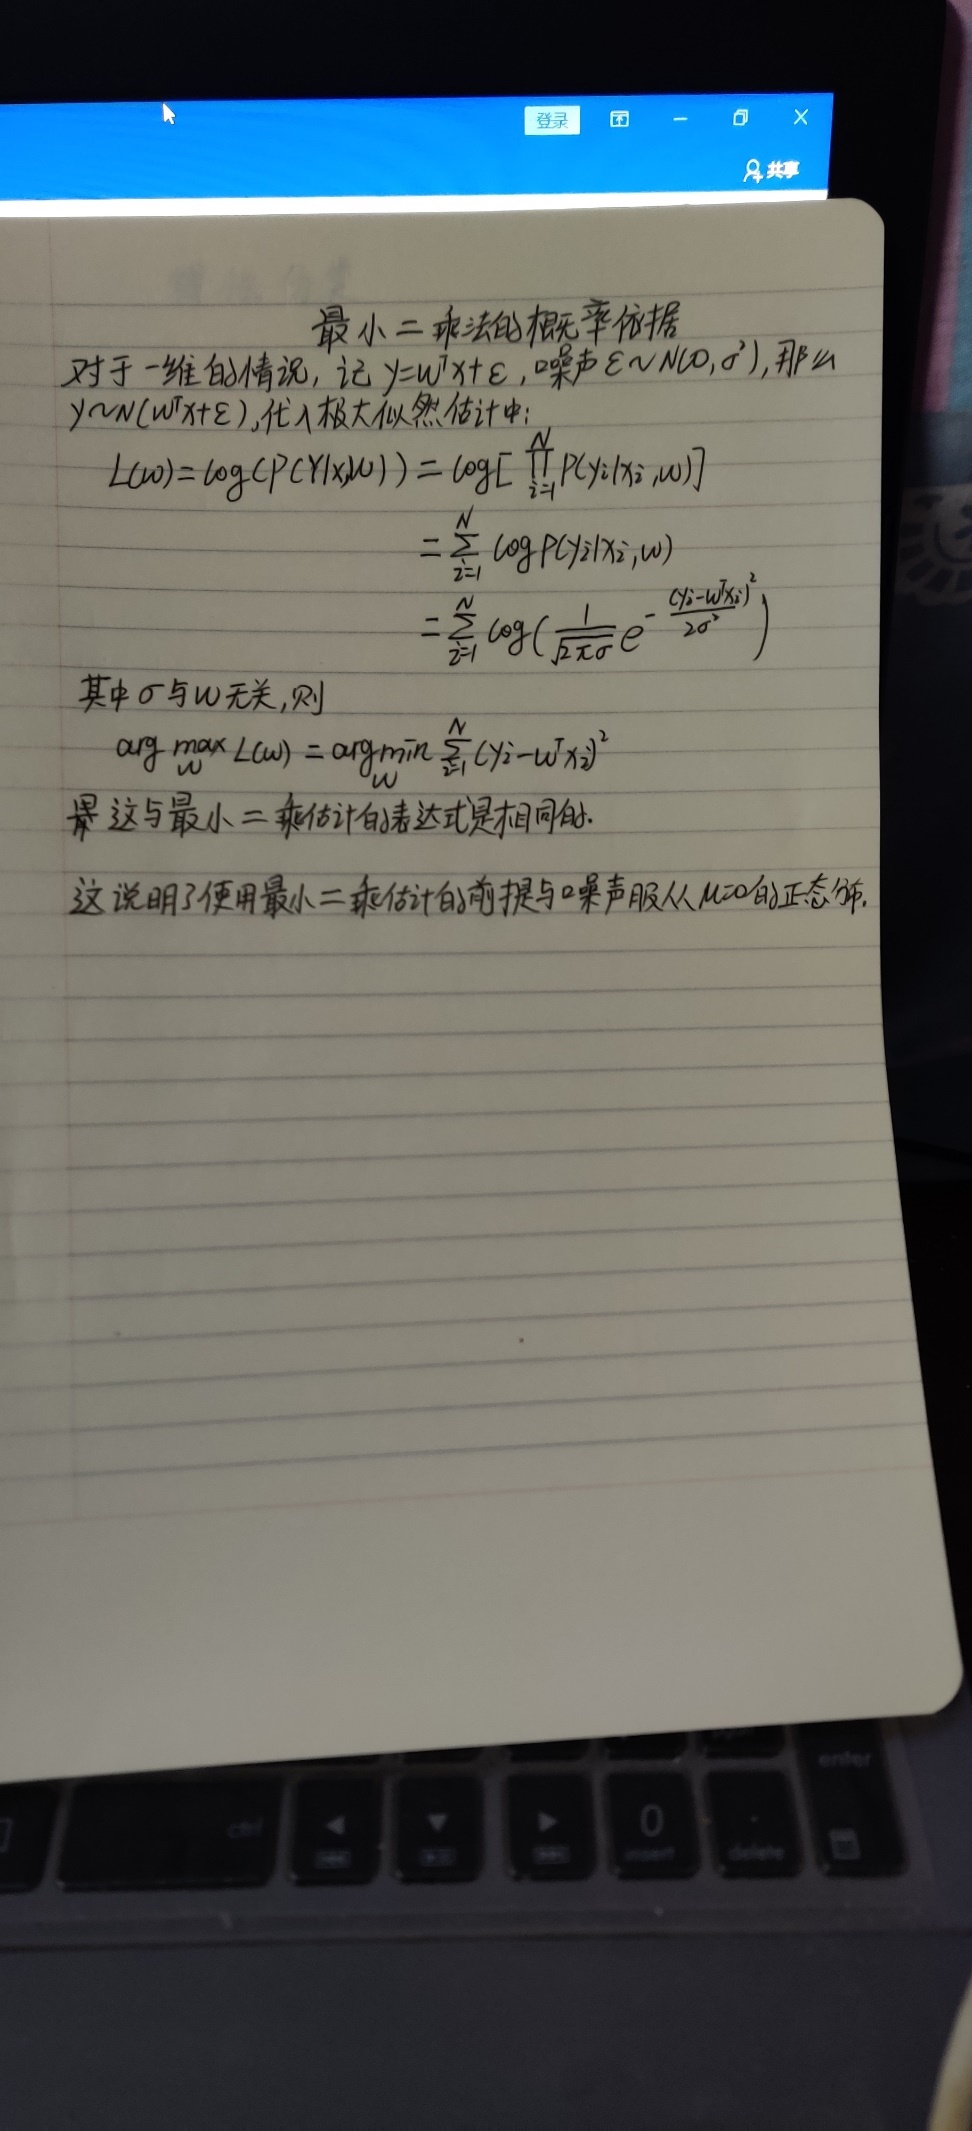 登录
共享
最小二乘法的概率依据
对于一维的情况, 记 y=wᵀx+ε, 噪声 ε~N(0,σ²), 那么
y~N(wᵀx+ε), 代入极大似然估计中:
L(w)=log(P(Y|x,w))=log[∏_{i=1}^{N} P(yi|xi,w)]
=∑_{i=1}^{N} log P(yi|xi,w)
=∑_{i=1}^{N} log(1/√2πσ e^{-(yi-wᵀxi)²/2σ²})
其中σ与w无关,则
arg max_w L(w) = arg min_w ∑_{i=1}^{N} (yi-wᵀxi)²
这与最小二乘估计的表达式是相同的.
这说明了使用最小二乘估计的前提与噪声服从μ=0的正态分布.
enter
ctrl
0
insert
delete